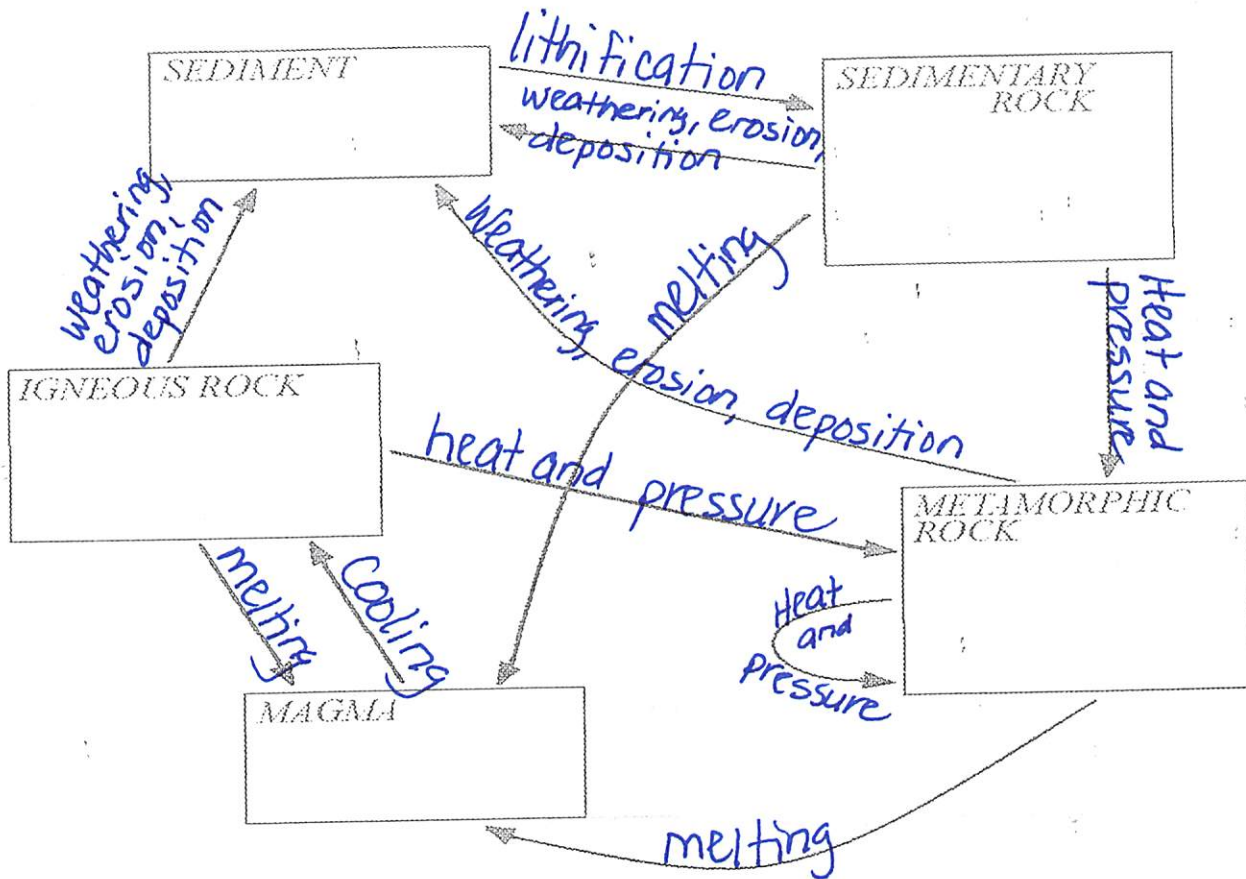 SEDIMENT
lithification
SEDIMENTARY
ROCK
weathering, erosion,
deposition
weathering,
erosion,
deposition
Weathering, erosion, deposition
melting
Heat and
pressure
IGNEOUS ROCK
heat and pressure
METAMORPHIC
ROCK
melting
Cooling
Heat
and
pressure
MAGMA
melting